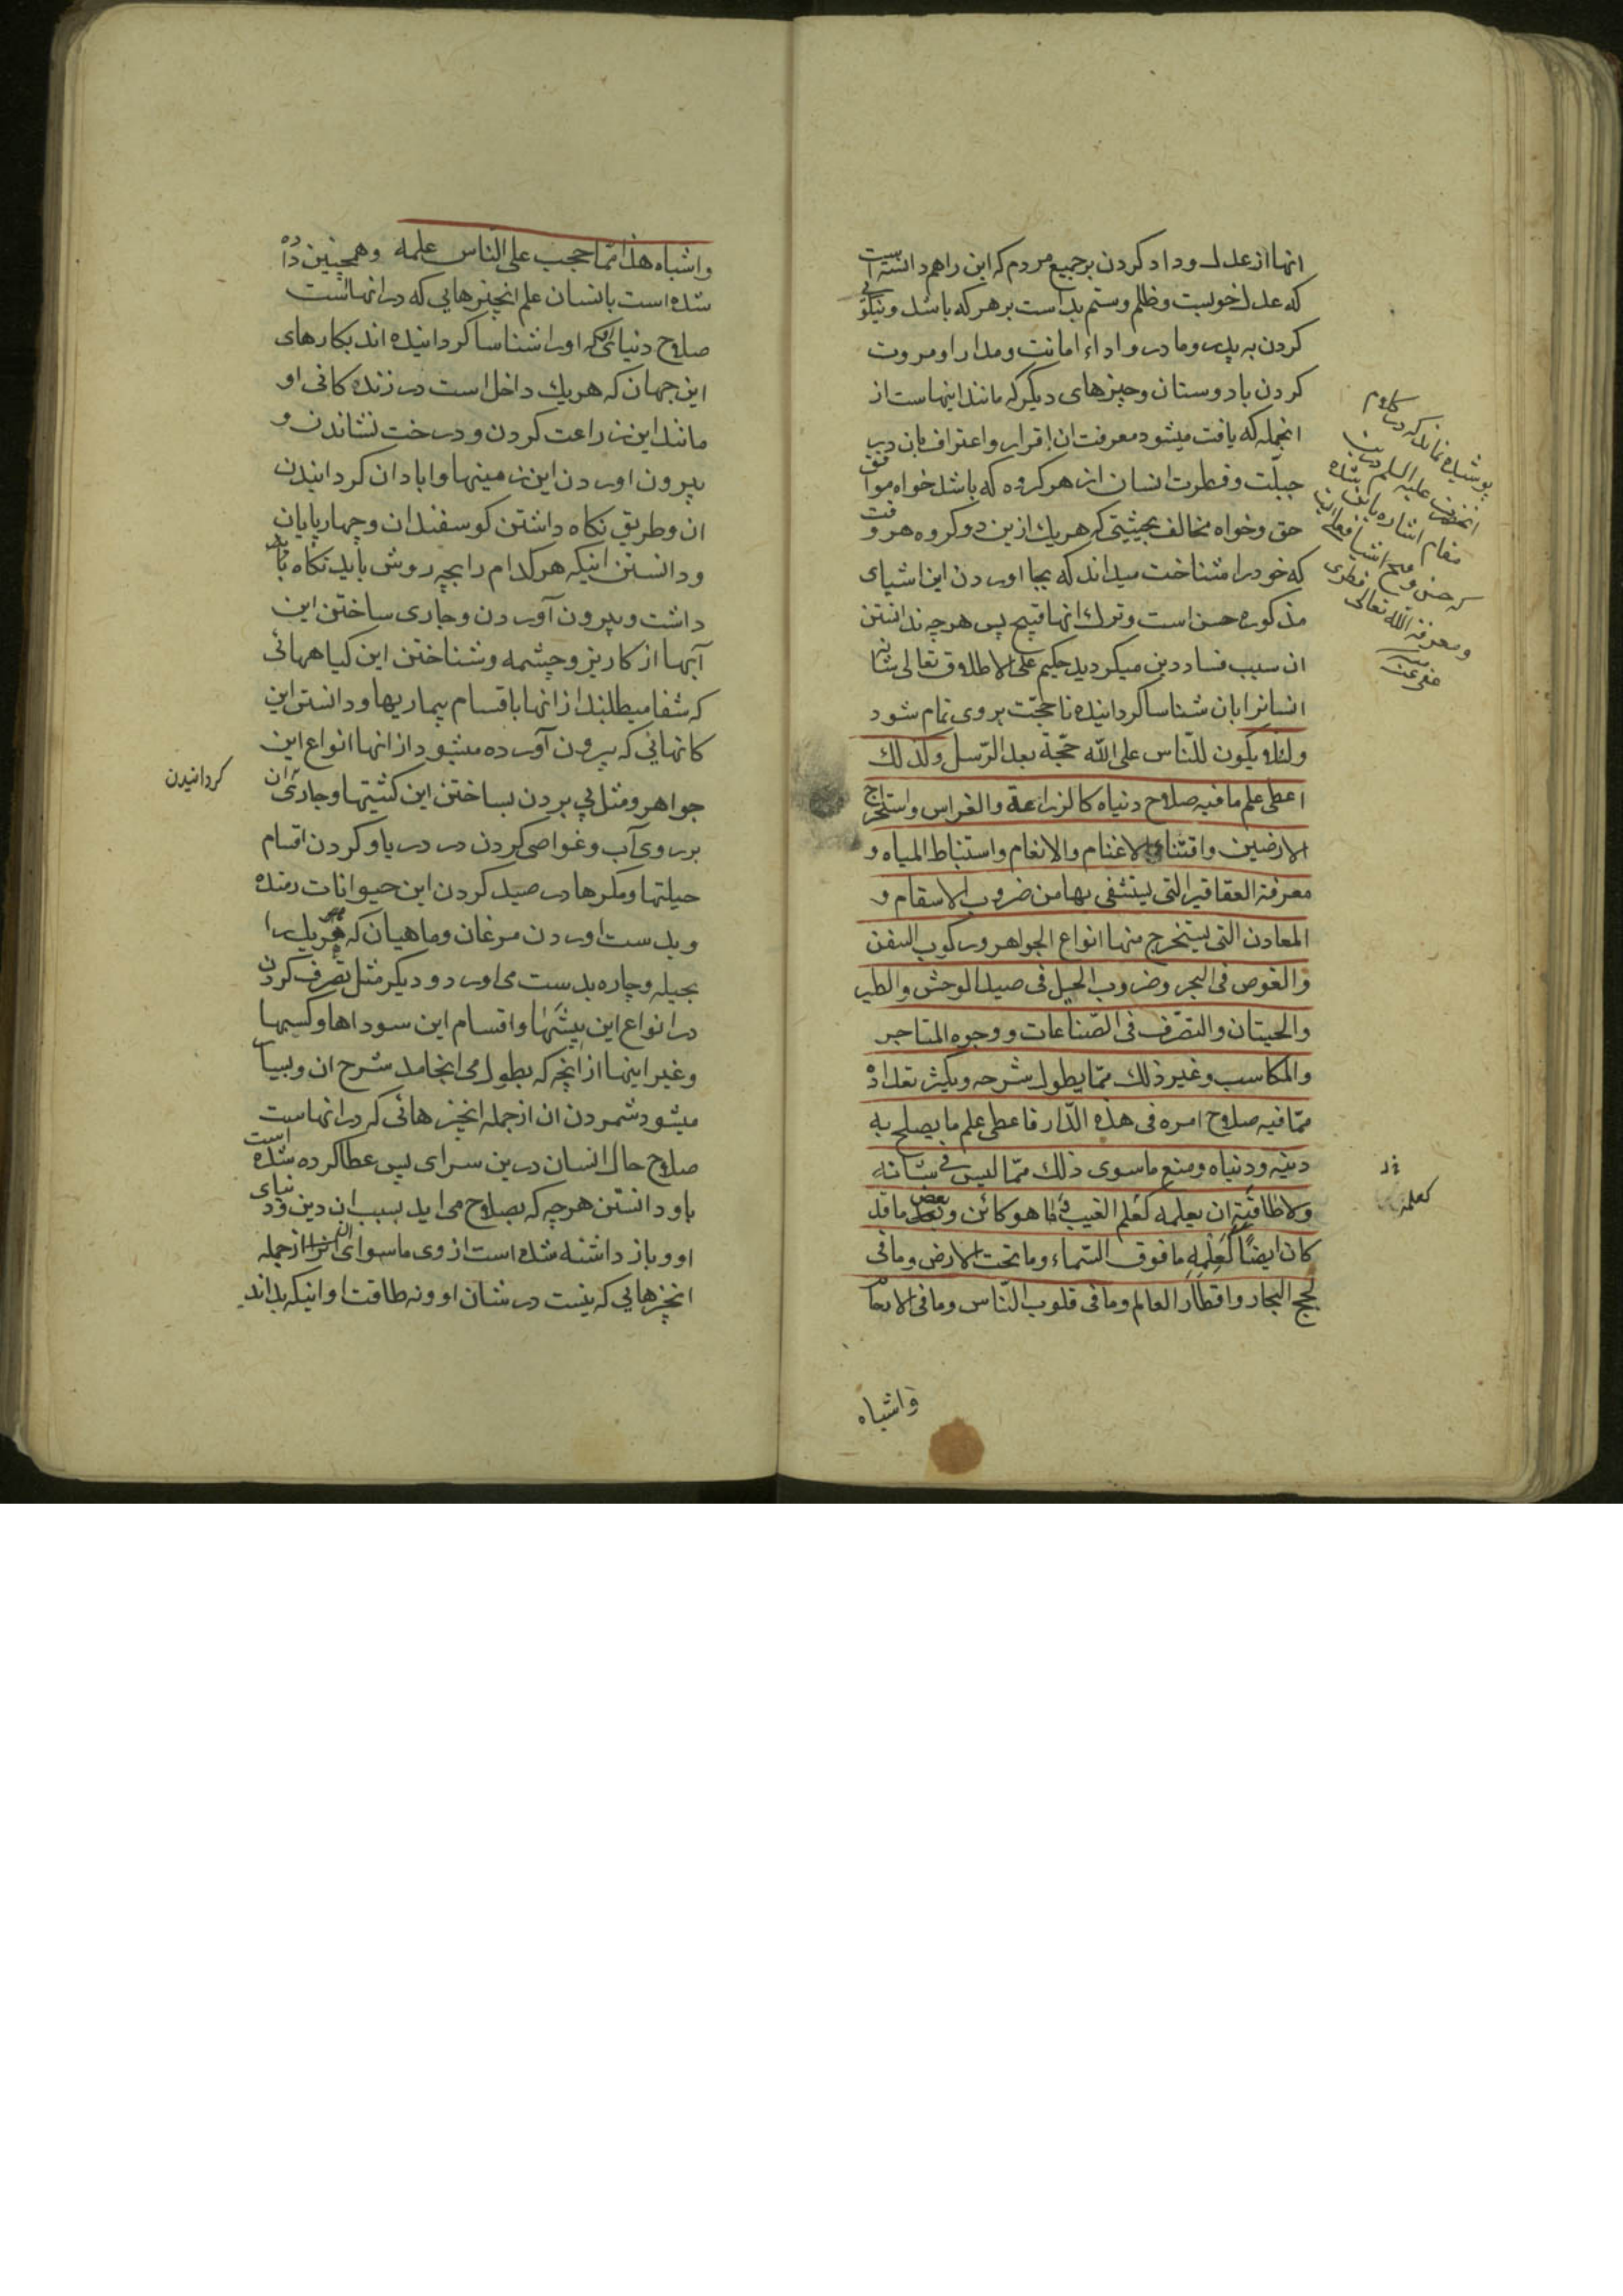 انها از عدل و داد کردن بر جمیع مردم که این را هم دانسته است
که عدل خوبست و ظلم و ستم بد است بر هر که باشد و نیکوئی
کردن به پدر و مادر و اداء امانت و مدارا و مروت
کردن با دوستان و چیزهای دیگر که مانند اینهاست از
انجمله که یافت میشود معرفت ان و اقرار و اعتراف بان در
جبلّت و فطرت انسان از هر کروه که باشد خواه موافق
حق و خواه مخالف بحیثیتی که هر یک ازین دو کروه هر وقت
که خود را شناخت میداند که بجا اوردن این اشیای
مذکوره حسن است و ترک انها قبیح پس هر چه ندانستن
ان سبب فساد دین میکردید حکیم علی الاطلاق تعالی شانه
انسانرا بان شناسا کردانیده تا حجّت بر وی تمام شود
ولئلا یکون للنّاس علی اللّه حجّة بعد الرّسل وکذلك
اعطی علم ما فیه صلاح دنیاه کالزراعة والغراس واستخراج
الارضین واقتناء الاغنام والانعام واستنباط المیاه و
معرفة العقاقیر التی یستشفی بها من ضروب الاسقام و
المعادن التی یستخرج منها انواع الجواهر ورکوب السفن
والغوص فی البحر وضروب الحیل فی صید الوحش والطیر
والحیتان والتصّرف فی الصّناعات ووجوه المتاجر
والمکاسب وغیر ذلك ممّا یطول شرحه ویکثر تعداده
ممّا فیه صلاح امره فی هذه الدّار فاعطی علم ما یصلح به
دینه ودنیاه ومنع ما سوی ذلك ممّا لیس فی شانه
ولا طاقته ان یعلمه کعلم الغیب وما هو کائن وبعض ما قد
کان ایضًا کعلمه ما فوق السّماء وما تحت الارض وما فی
لجج البحار واقطار العالم وما فی قلوب النّاس وما فی الارحام
واشباه
پوشیده نماند که در کلام
انحضرت علیه السلم درین
مقام اشاره باین شده
که حسن و قبح اشیا فعلی ان
ومعرفة اللّه تعالی فطری
کعلمه
واشباه هذا ممّا حجب علی النّاس علمه وهمچنین داده
شده است بانسان علم انچیزهایی که در انهاست
صلاح دنیای او که اورا شناسا کردانیده اند بکارهای
این جهان که هر یك داخل است در زنده کانی او
مانند این زراعت کردن و درخت نشاندن و
بیرون اوردن این زمینها و ابادان کردانیدن
ان و طریق نکاه داشتن کوسفندان و چهار پایان
و دانستن اینکه هر کدام را بچه روش باید نکاه
داشت و بیرون آوردن و جاری ساختن این
آبها از کاریز و چشمه و شناختن این کیاههائی
که شفا میطلبند از انها باقسام بیماریها و دانستن این
کانهائی که بیرون آورده میشود از انها انواع این
جواهر و مثل پی بردن بساختن این کشتیها و جاری ان
کردانیدن
بر روی آب و غواصی کردن در دریا و کردن اقسام
حیلتها و مکرها در صید کردن این حیوانات رمنده
و بدست اوردن مرغان و ماهیان که هر یك را
بحیله و چاره بدست می اورد و دیکر مثل تصرف کردن
در انواع این پیشَهٰا و اقسام این سوداها و کسبها
و غیر اینها از انچه که بطول می انجامد شرح ان و بسیار
میشود شمردن ان از جمله انچیزهائی که در انهاست
صلاح حال انسان درین سرای پس عطا کرده شده است
باو دانستن هر چه که بصلاح می اید بسبب ان دین و دنیای
او و باز داشته شده است از وی ماسوای ان از جمله
انچیزهایی که نیست در شان او و نه طاقت او اینکه بداند